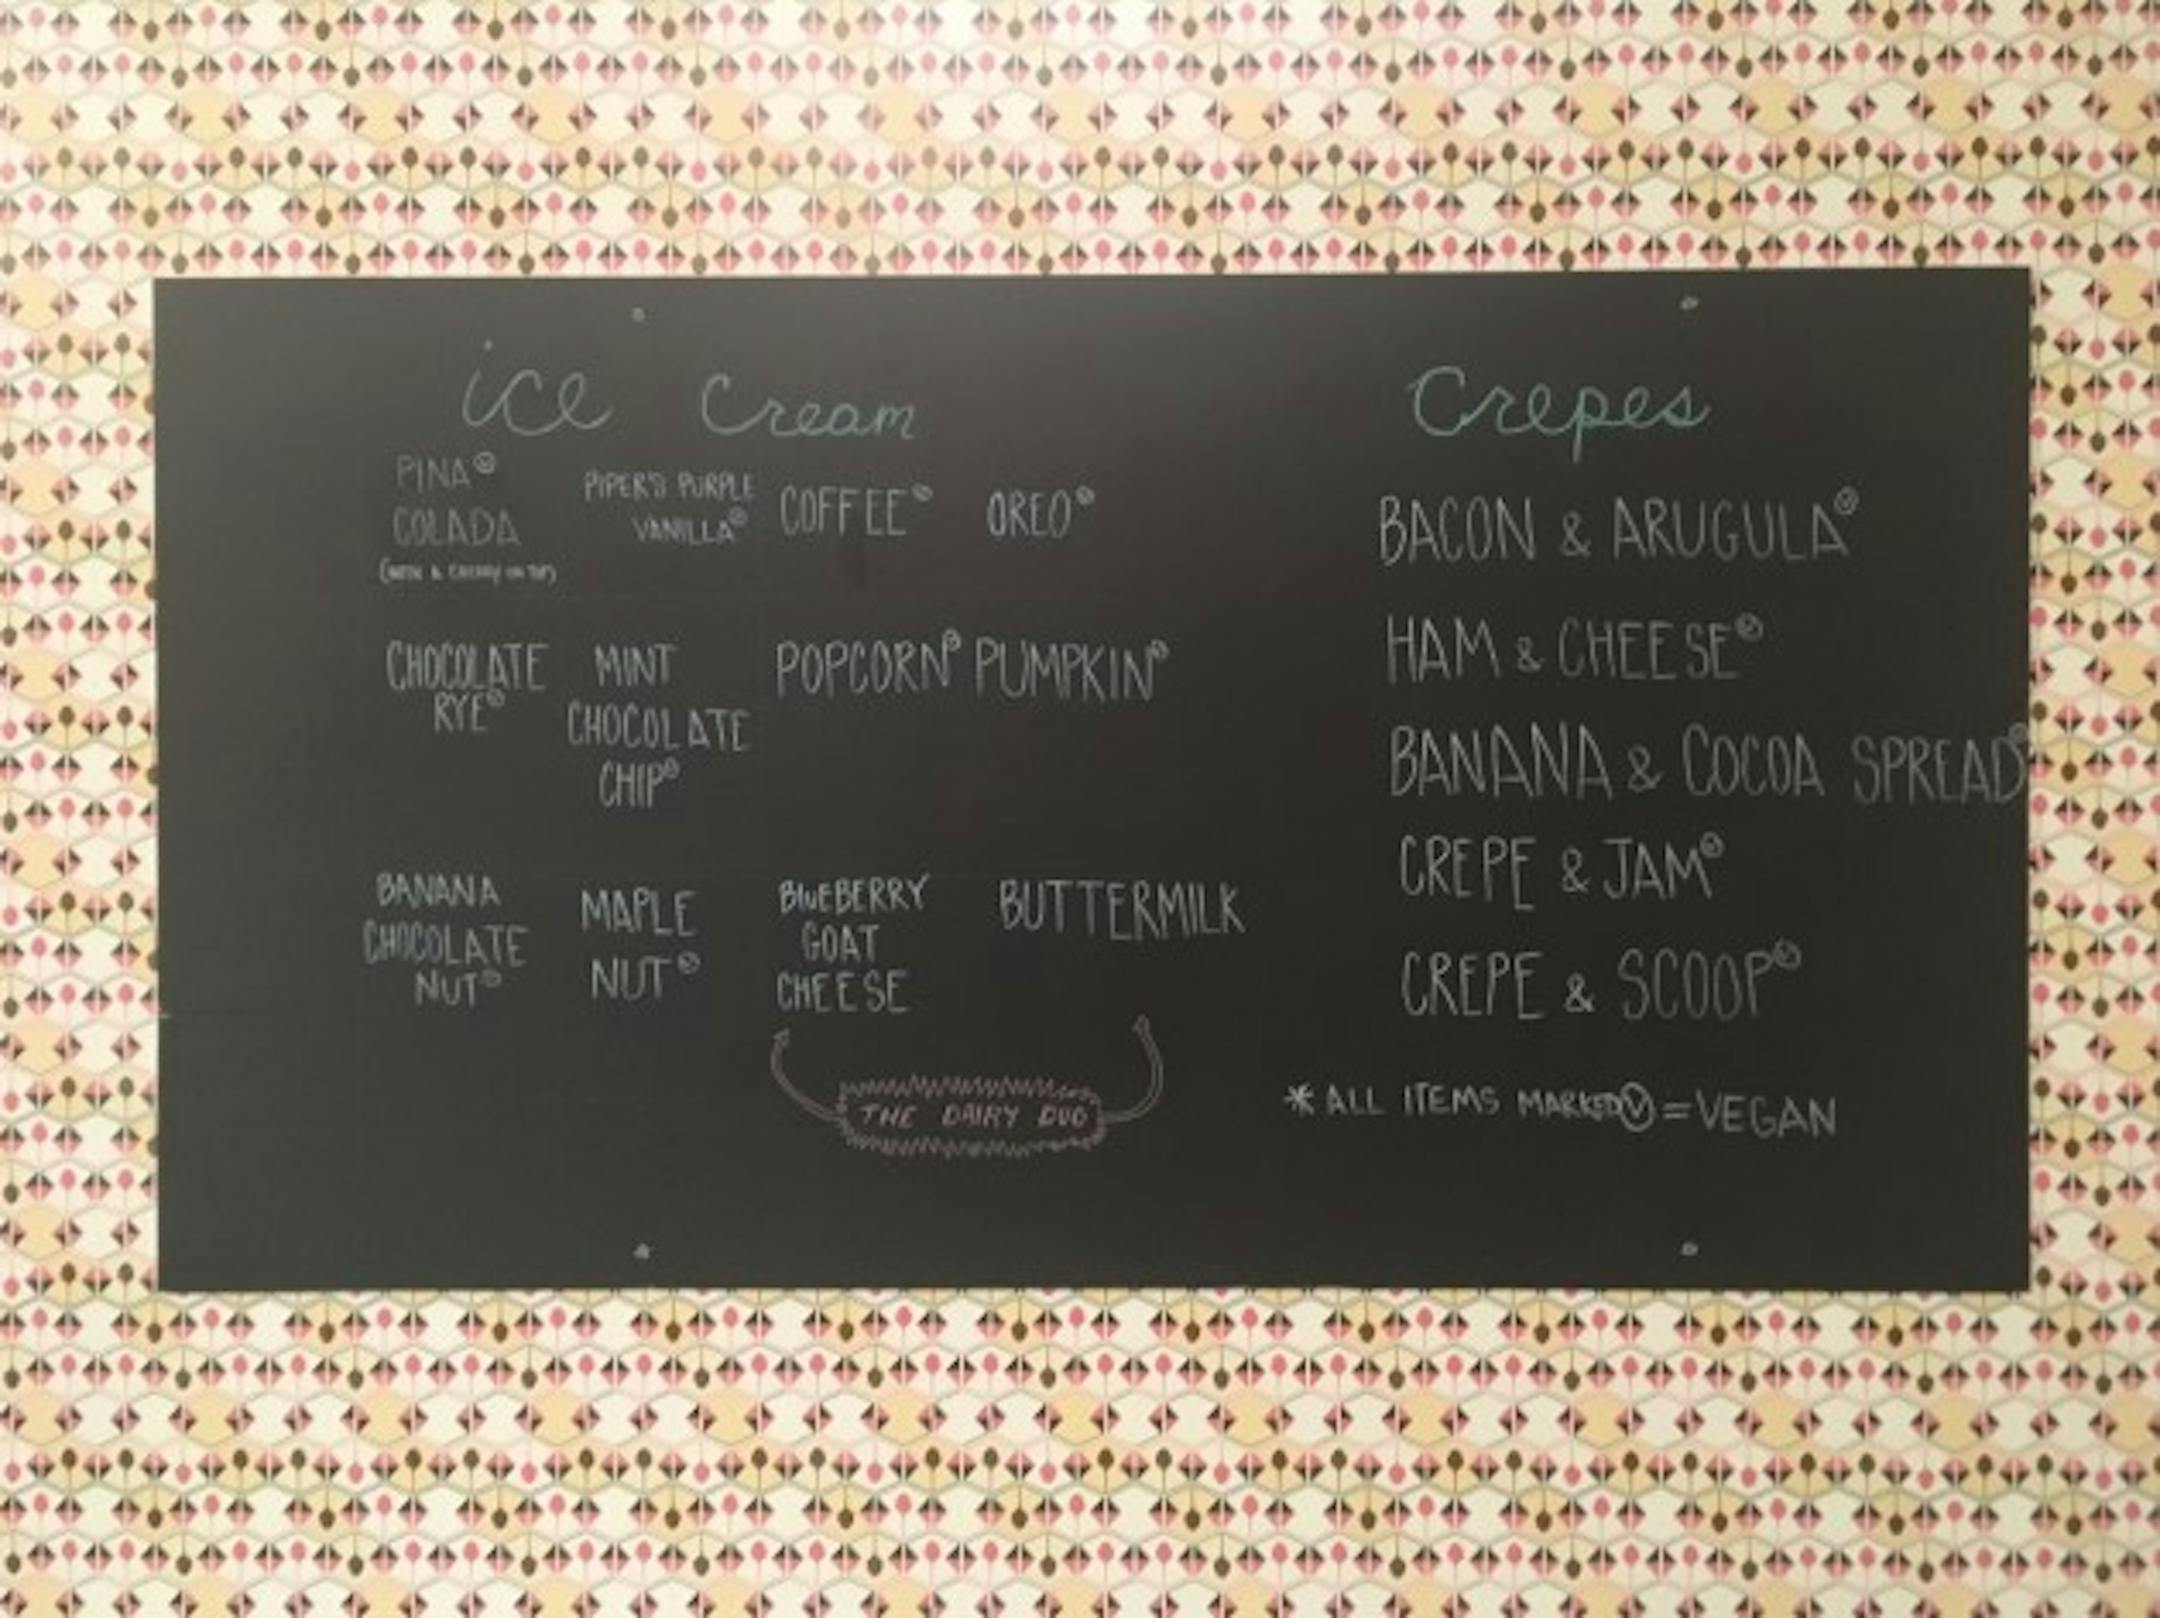 ice cream
Crepes
PINA Ⓥ
COLADA
(WITH A CHERRY ON TOP)
PIPER'S PURPLE
VANILLA Ⓥ
COFFEE Ⓥ
OREO Ⓥ
CHOCOLATE
RYE Ⓥ
MINT
CHOCOLATE
CHIP Ⓥ
POPCORN Ⓥ
PUMPKIN Ⓥ
BANANA
CHOCOLATE
NUT Ⓥ
MAPLE
NUT Ⓥ
BLUEBERRY
GOAT
CHEESE
BUTTERMILK
THE DAIRY DUO
BACON & ARUGULA Ⓥ
HAM & CHEESE Ⓥ
BANANA & COCOA SPREAD Ⓥ
CREPE & JAM Ⓥ
CREPE & SCOOP Ⓥ
* ALL ITEMS MARKED Ⓥ = VEGAN